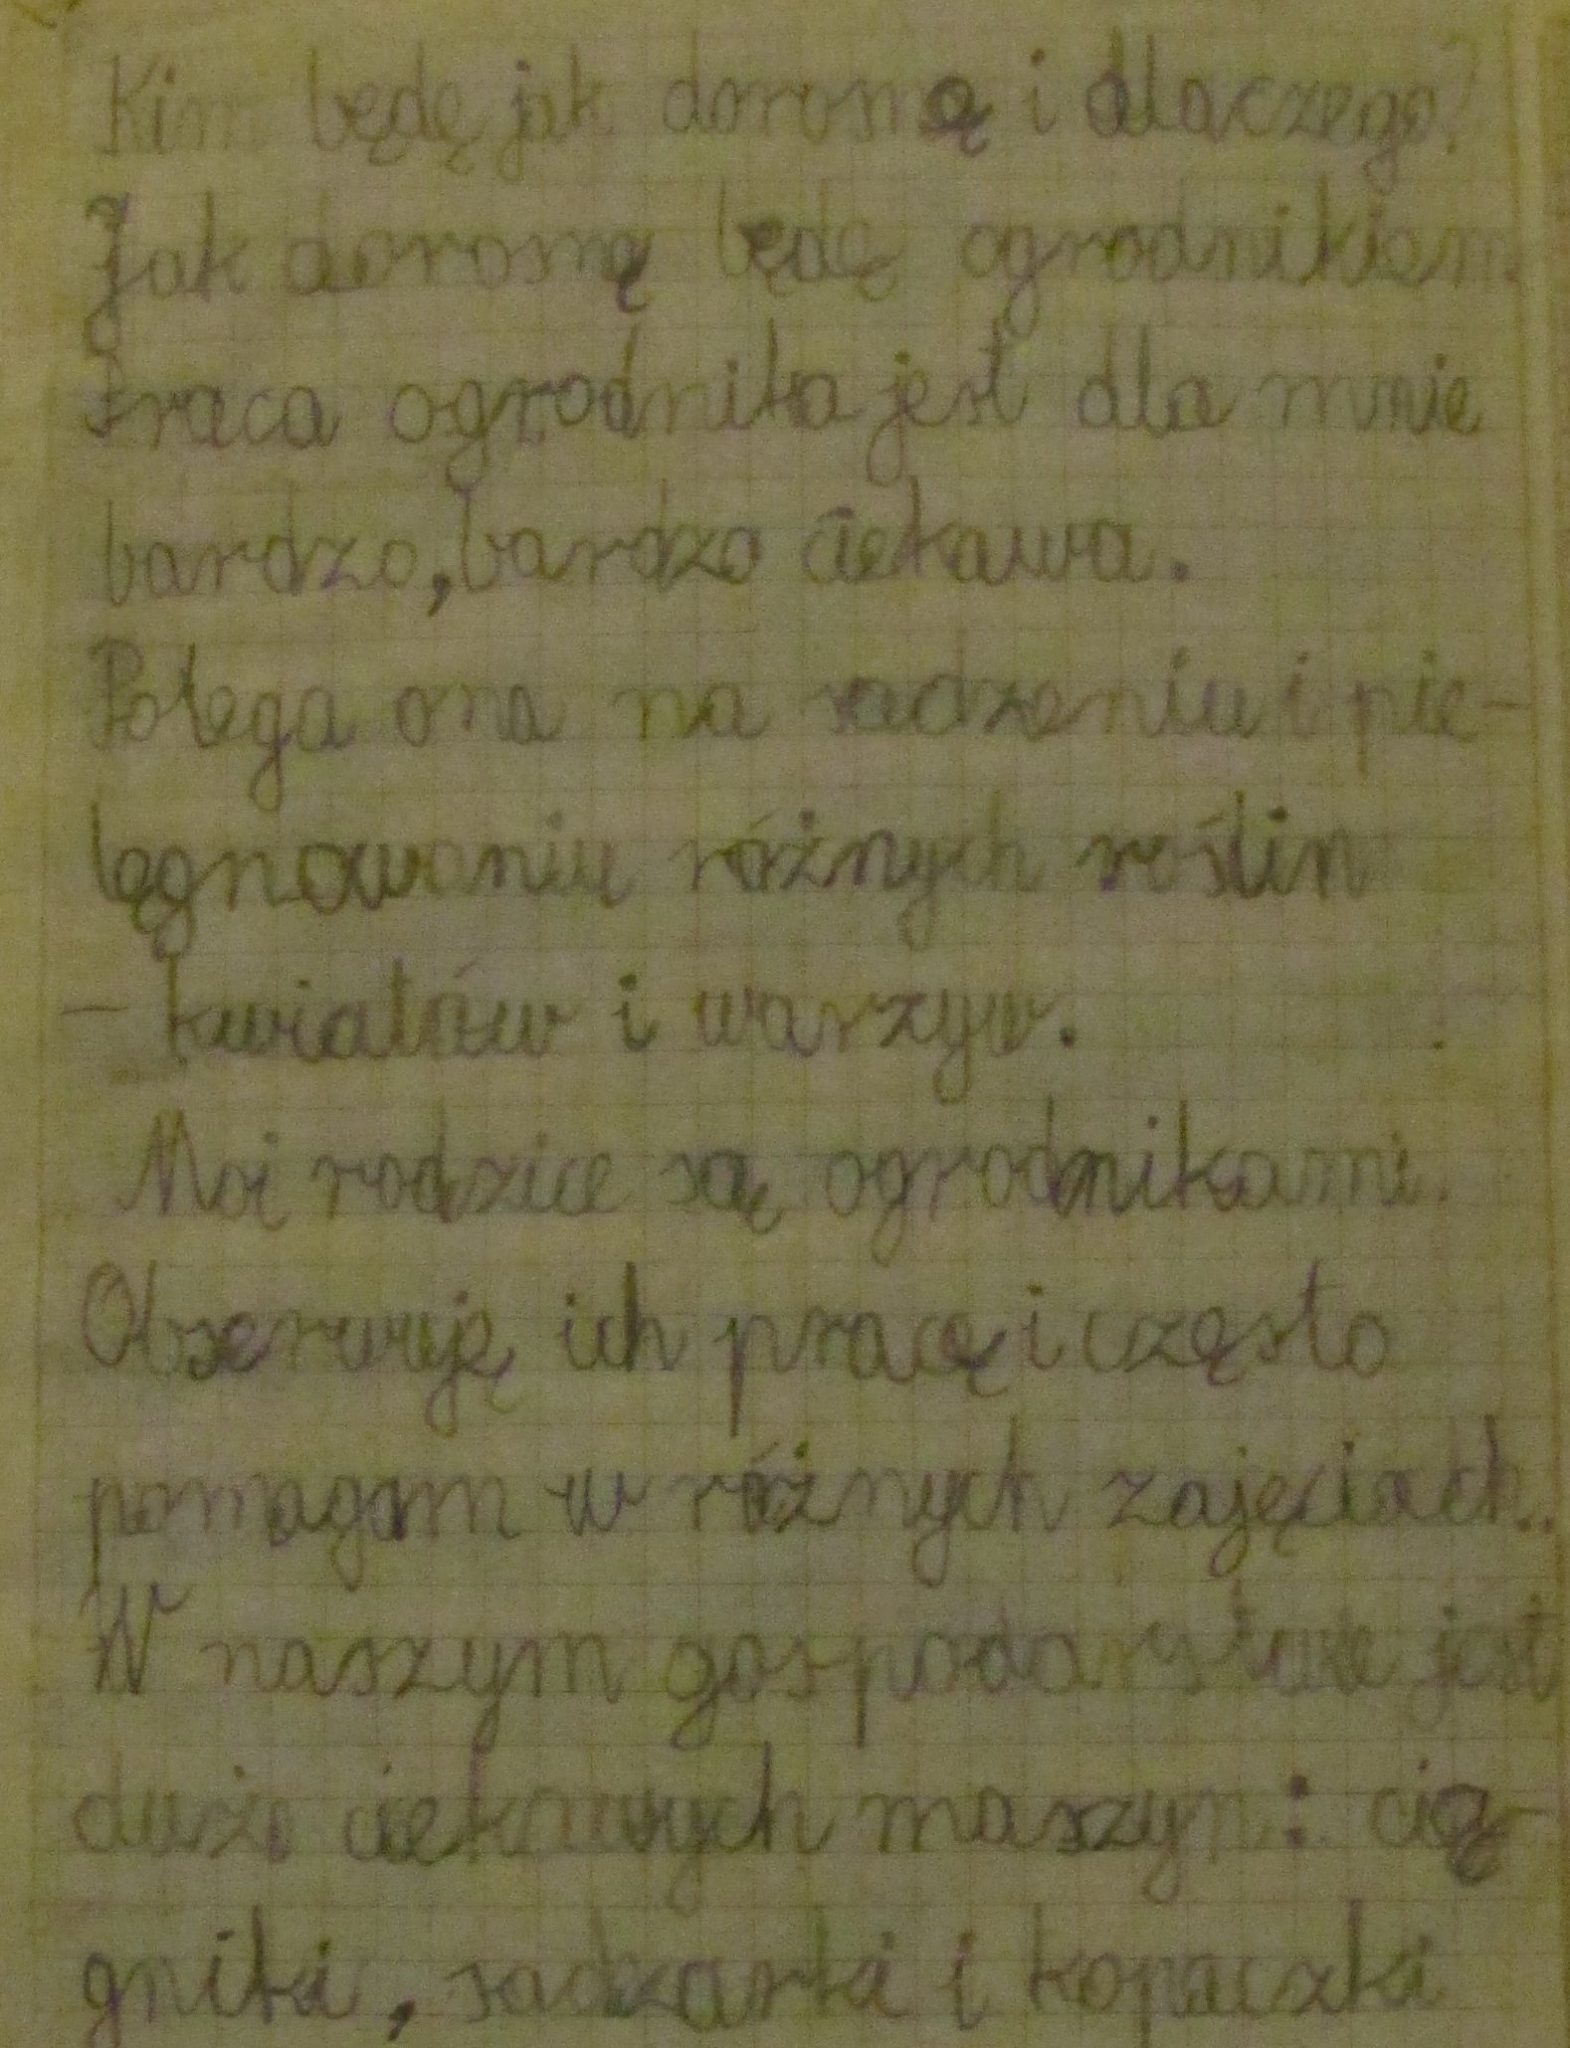 Kim będę jak dorosnę i dlaczego?
Jak dorosnę będę ogrodnikiem
Praca ogrodnika jest dla mnie
bardzo, bardzo ciekawa.
Polega ona na sadzeniu i pie-
lęgnowaniu różnych roślin
- kwiatów i warzyw.
Moi rodzice są ogrodnikami.
Obserwuję ich pracę i często
pomagam w różnych zajęciach..
W naszym gospodarstwie jest
dużo ciekawych maszyn: cią-
gniki, sadzarki i kopaczki